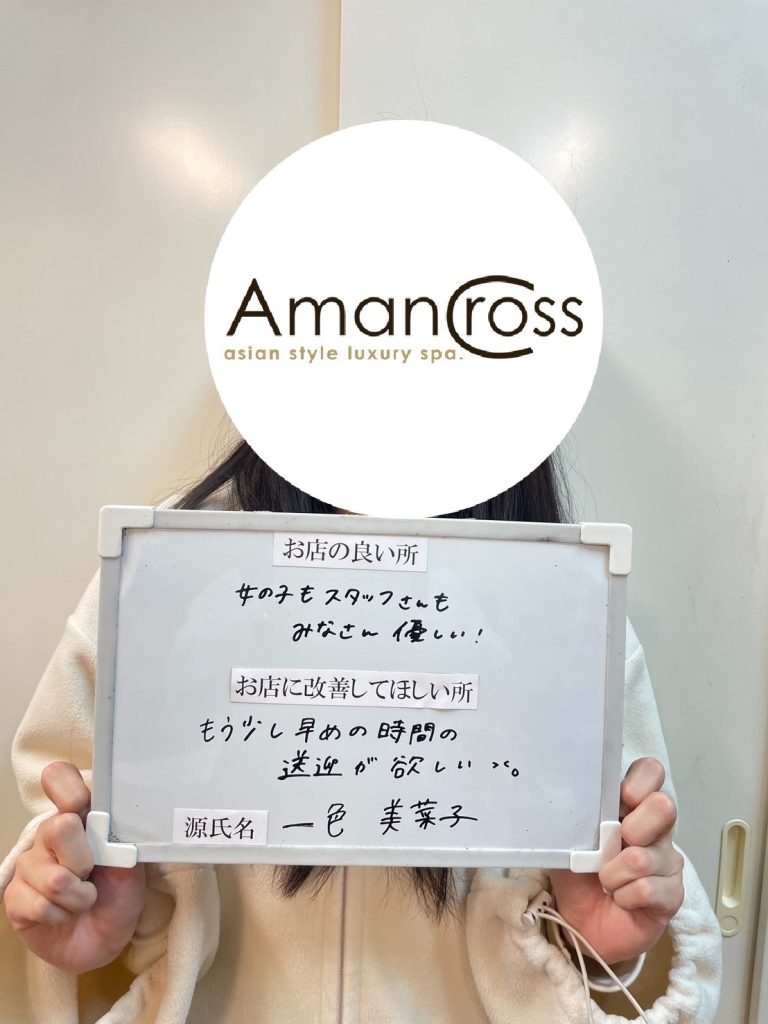 AmanCross
asian style luxury spa.
お店の良い所
女の子もスタッフさんも
みなさん優しい!
お店に改善してほしい所
もう少し早めの時間の
送迎が欲しい><。
源氏名 一色 美葉子